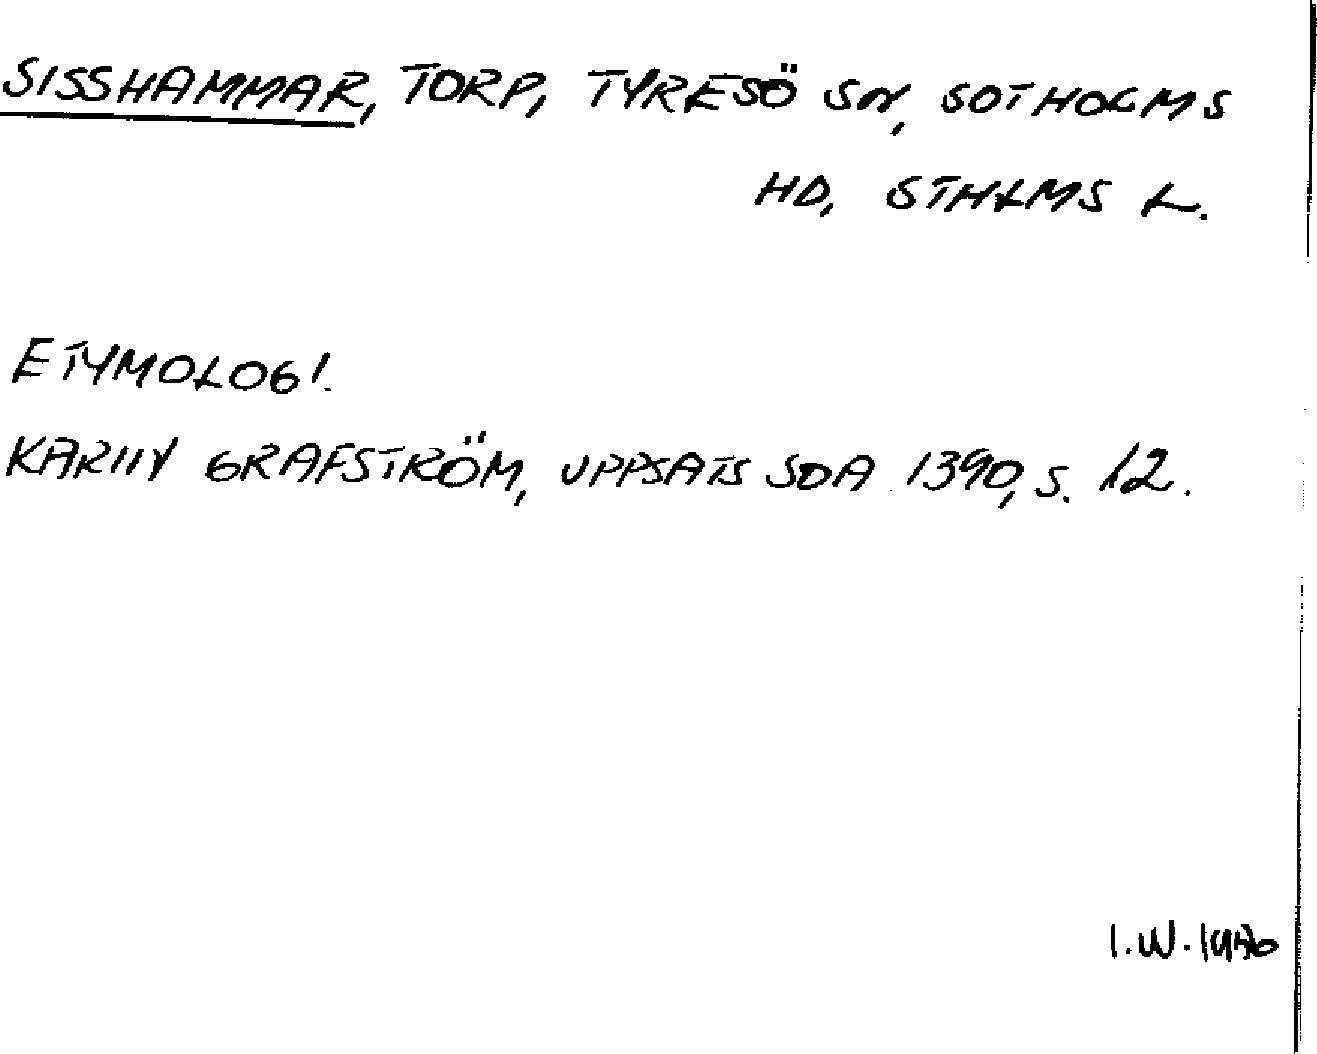 SISSHAMMAR, TORP, TYRESÖ SN, SOTHOLMS
HD, STHLMS L.
ETYMOLOGI.
KARIN GRAFSTRÖM, UPPSATS SOA 1390, S. 12.
I.W.